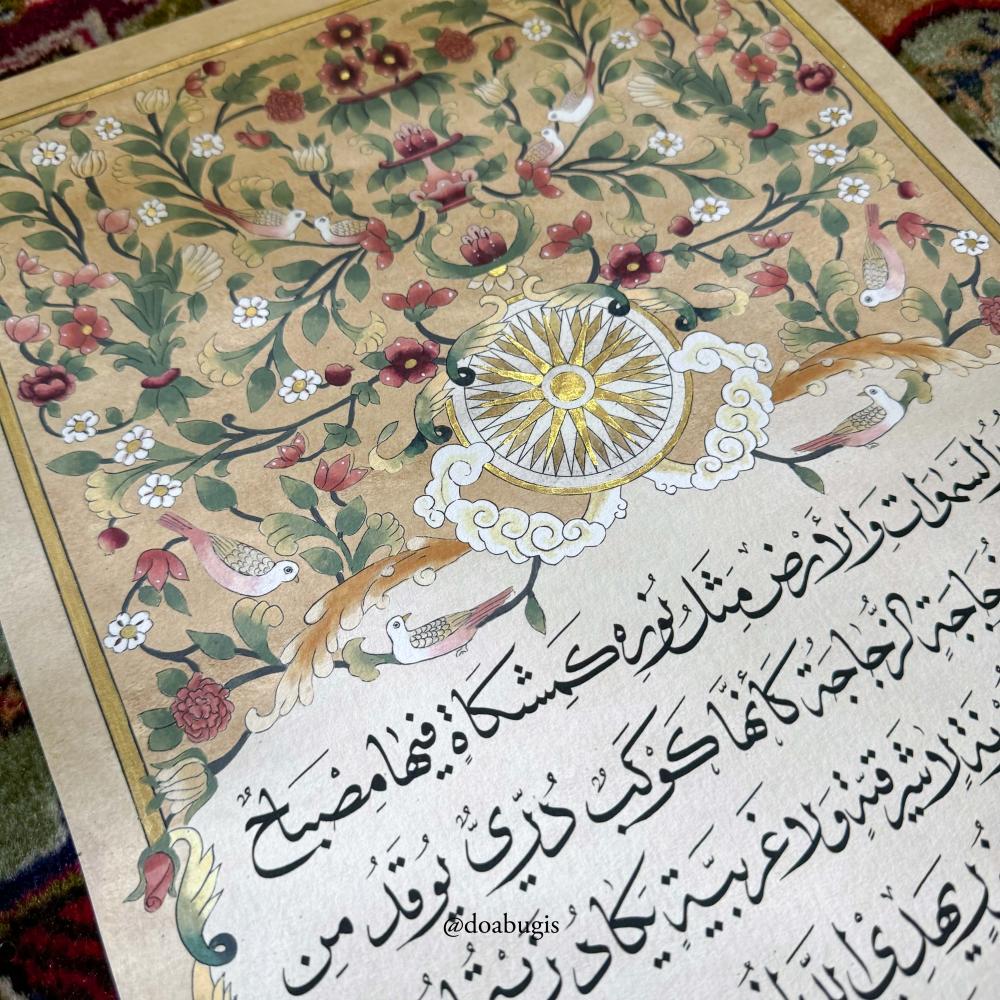 السَّمٰوَاتِ وَالْأَرْضِ مَثَلُ نُورِهِ كَمِشْكَاةٍ فِيهَا مِصْبَاحٌ
الزُّجَاجَةُ كَأَنَّهَا كَوْكَبٌ دُرِّيٌّ يُوقَدُ مِن
لَا شَرْقِيَّةٍ وَلَا غَرْبِيَّةٍ يَكَادُ
يَهْدِي
@doabugis